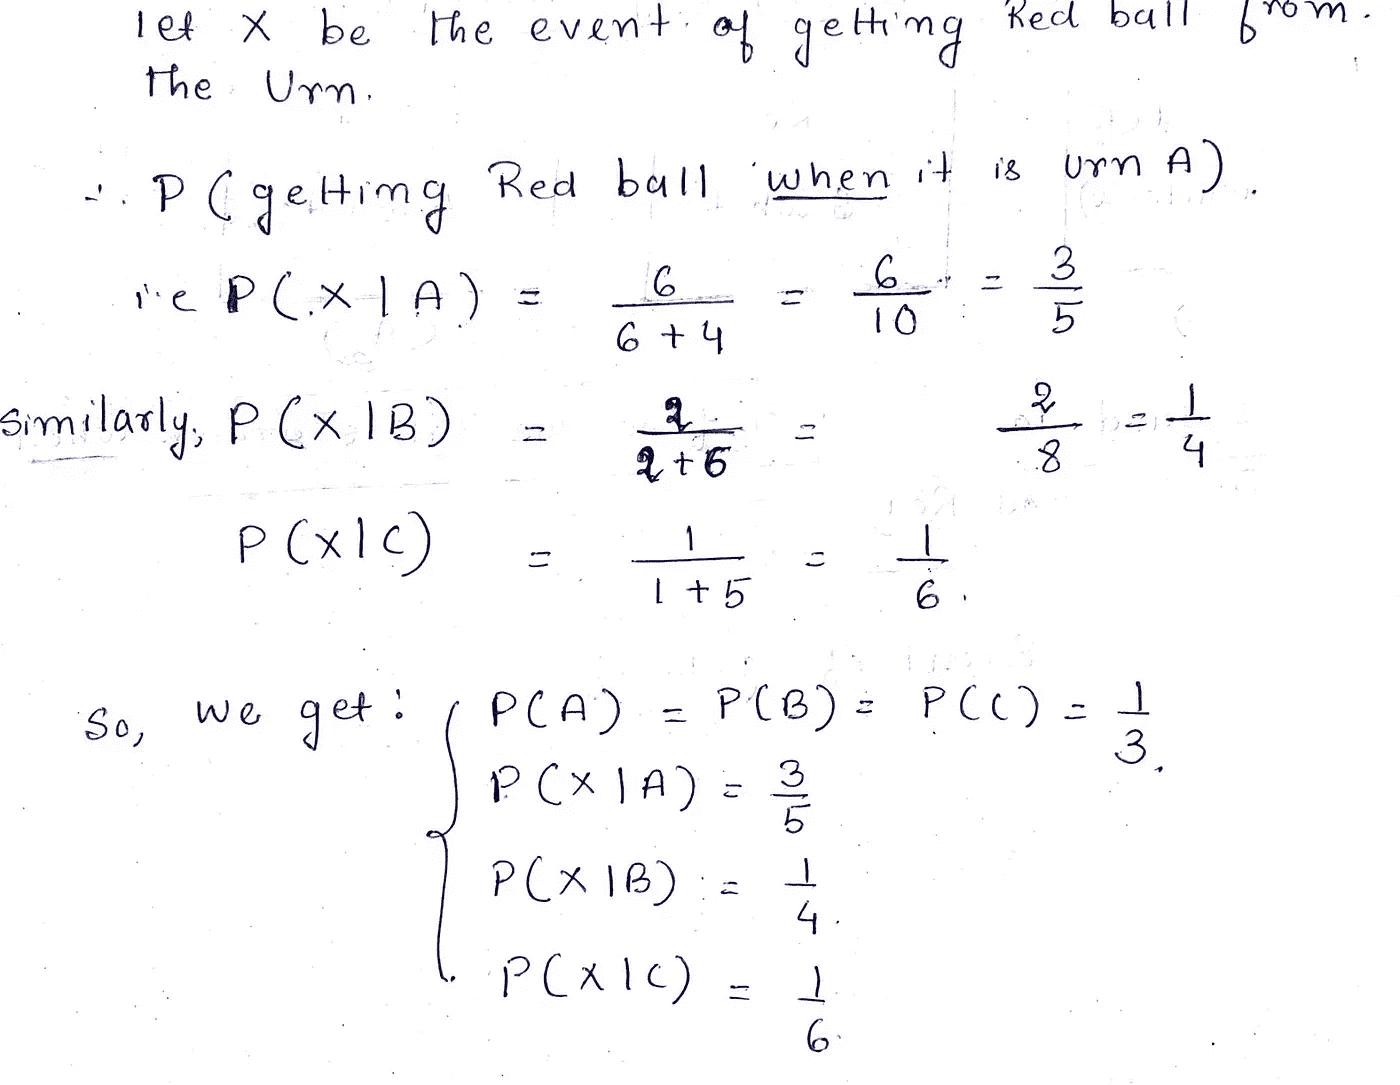 let X be the event of getting Red ball from.
the Urn.
∴ P(getting Red ball when it is urn A).
i.e P(X|A) = 6/(6+4) = 6/10 = 3/5
Similarly, P(X|B) = 2/(2+6) = 2/8 = 1/4
P(X|C) = 1/(1+5) = 1/6.
So, we get: { P(A) = P(B) = P(C) = 1/3.
P(X|A) = 3/5
P(X|B) = 1/4.
P(X|C) = 1/6.